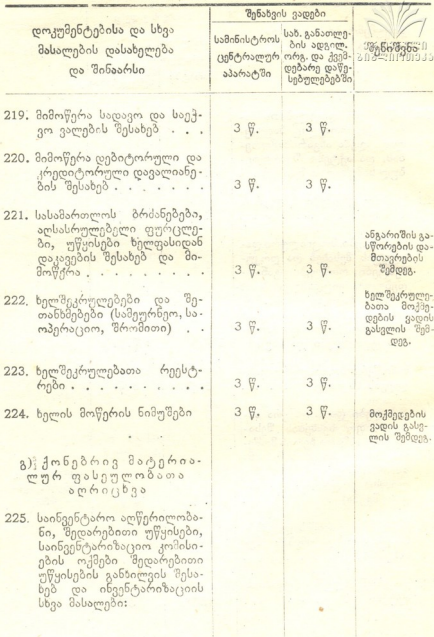 დოკუმენტებისა და სხვა
მასალების დასახელება
და შინაარსი
შენახვის ვადები
სამინისტროს
ცენტრალურ
აპარატში
სახ. განათლე-
ბის ადგილ.
ორგ. და ქვემ-
დებარე დაწე-
სებულებებში
შენიშვნა
219. მიმოწერა სადავო და საეჭ-
ვო ვალების შესახებ . . . 3 წ. 3 წ.
220. მიმოწერა დებიტორული და
კრედიტორული დავალიანე-
ბის შესახებ . . . . . . . 3 წ. 3 წ.
221. სასამართლოს ბრძანებები,
აღსასრულებელი ფურცლე-
ბი, უწყისები ხელფასიდან
დაკავების შესახებ და მი-
მოწერა . . . . . . . . . 3 წ. 3 წ.
ანგარიშის გა-
სწორების და-
მთავრების
შემდეგ.
222. ხელშეკრულებები და შე-
თანხმებები (სამეურნეო, სა-
ოპერაციო, შრომითი) . . 3 წ. 3 წ.
ხელშეკრულე-
ბათა მოქმე-
დების ვადის
გასვლის შემ-
დეგ.
223. ხელშეკრულებათა რეესტ-
რები . . . . . . . . . . 3 წ. 3 წ.
224. ხელის მოწერის ნიმუშები 3 წ. 3 წ.
მოქმედების
ვადის გასვ-
ლის შემდეგ.
გ) ქონებრივ მატერია-
ლურ ფასეულობათა
აღრიცხვა
225. საინვენტარო აღწერილობა-
ნი, შედარებითი უწყისები,
საინვენტარიზაციო კომისი-
ების ოქმები შედარებითი
უწყისების განხილვის შესა-
ხებ და ინვენტარიზაციის
სხვა მასალები: